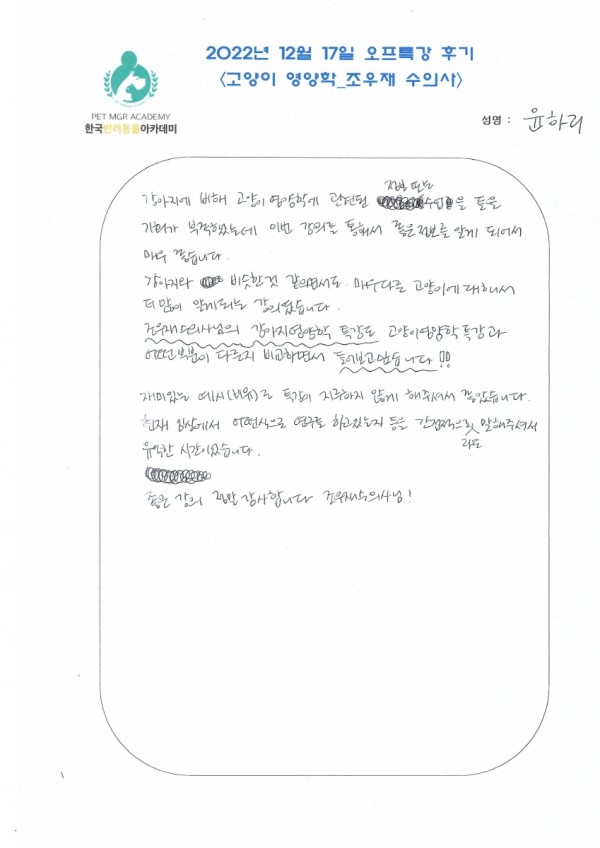 2022년 12월 17일 오프특강 후기
<고양이 영양학_조우재 수의사>
PET MGR ACADEMY
한국반려동물아카데미
성명 : 윤하리
강아지에 비해 고양이 영양학에 관련된 정보 또는 수업을 들을
기회가 부족했는데 이번 강의를 통해서 좋은 정보를 알게 되어서
매우 좋습니다.
강아지와 비슷한것 같으면서도 매우다른 고양이에 대해서
더 많이 알게되는 강의였습니다.
조우재수의사님의 강아지영양학 특강도 고양이영양학 특강과
어떤부분이 다른지 비교하면서 들어보고싶습니다!!
재미있는 예시(비유)로 특강이 지루하지 않게 해주셔서 좋았습니다.
현재 임상에서 어떤식으로 연구를 하고있는지 등을 간접적으로라도 말해주셔서
유익한 시간이었습니다.
좋은 강의 정말 감사합니다 조우재수의사님!